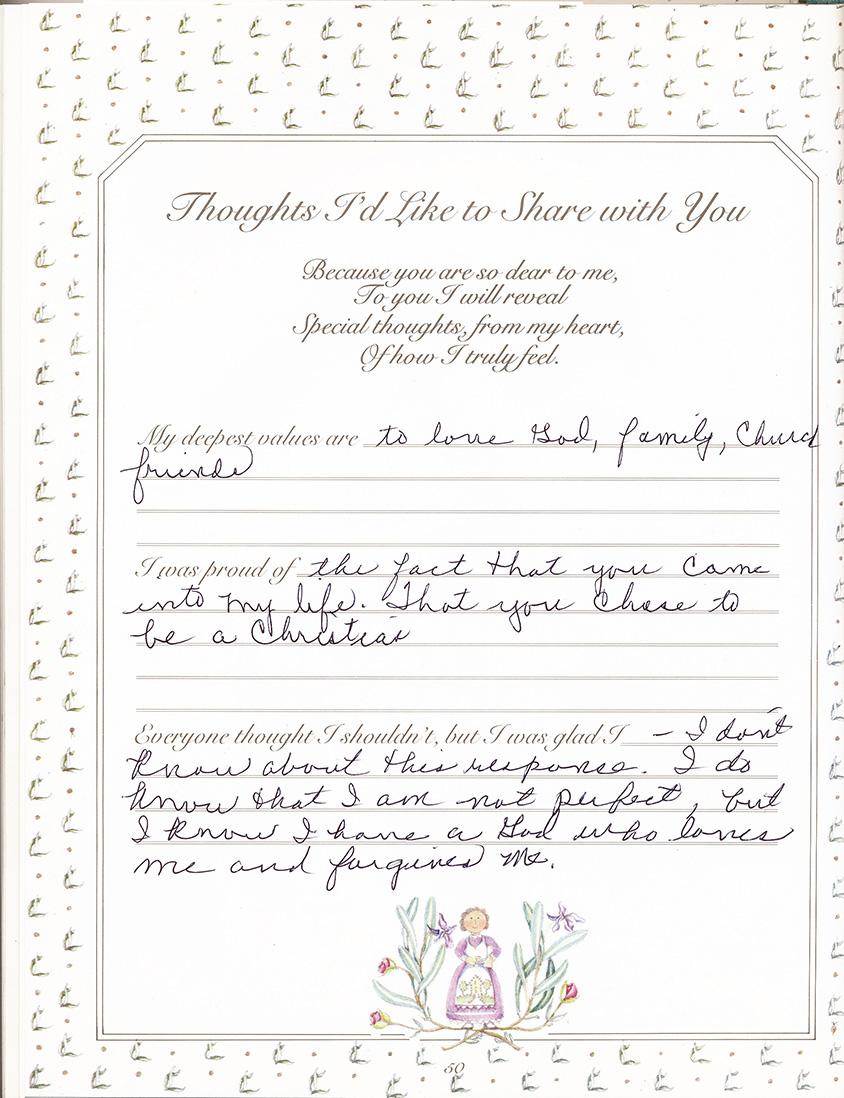 Thoughts I'd Like to Share with You
Because you are so dear to me,
To you I will reveal
Special thoughts, from my heart,
Of how I truly feel.
My deepest values are to love God, family, Church
friends
I was proud of the fact that you came
into my life. That you chose to
be a Christian
Everyone thought I shouldn't, but I was glad I - I don't
know about this response. I do
know that I am not perfect, but
I know I have a God who loves
me and forgives me.
50